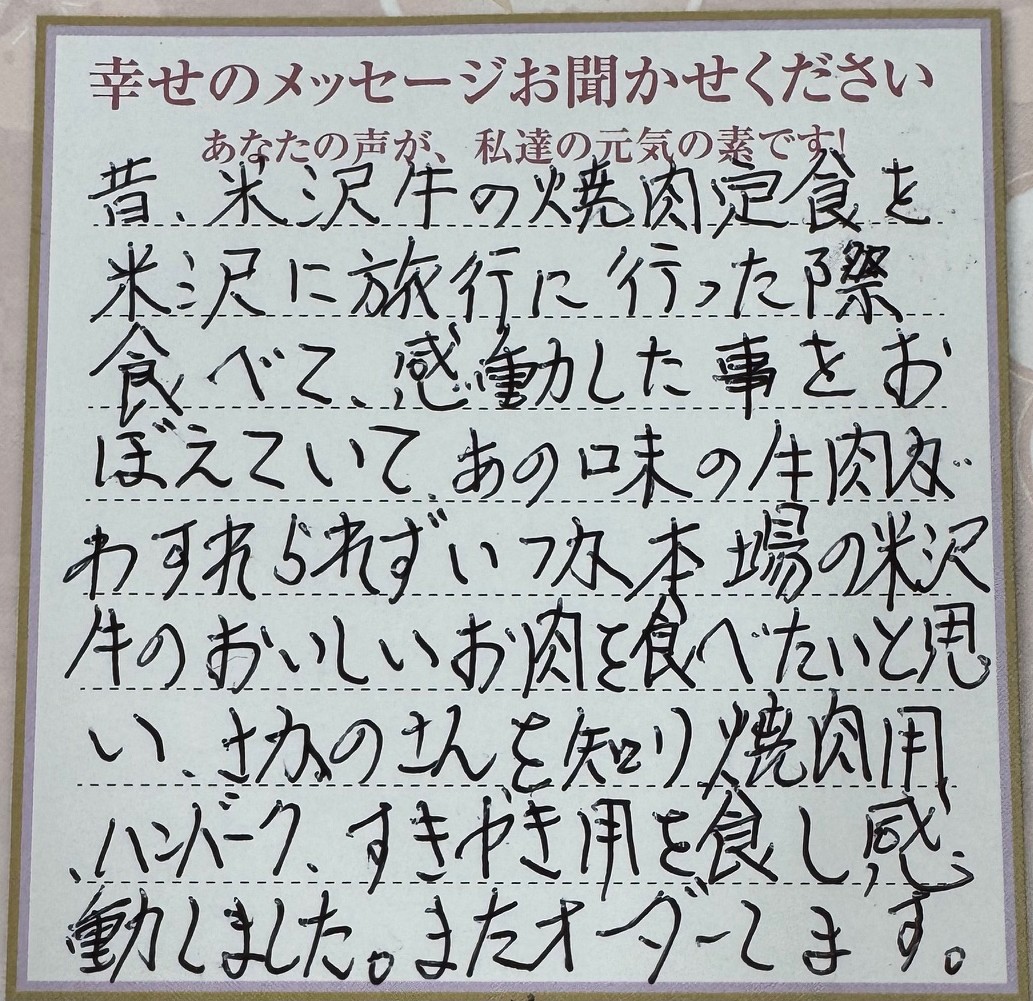 幸せのメッセージお聞かせください
あなたの声が、私達の元気の素です!
昔、米沢牛の焼肉定食を
米沢に旅行に行った際
食べて、感動した事をお
ぼえていて、あの味の牛肉が
わすれられずいつか本場の米沢
牛のおいしいお肉を食べたいと思
い、さかのさんを知り焼肉用
、ハンバーグ、すきやき用を食し感
動しました。またオーダーします。